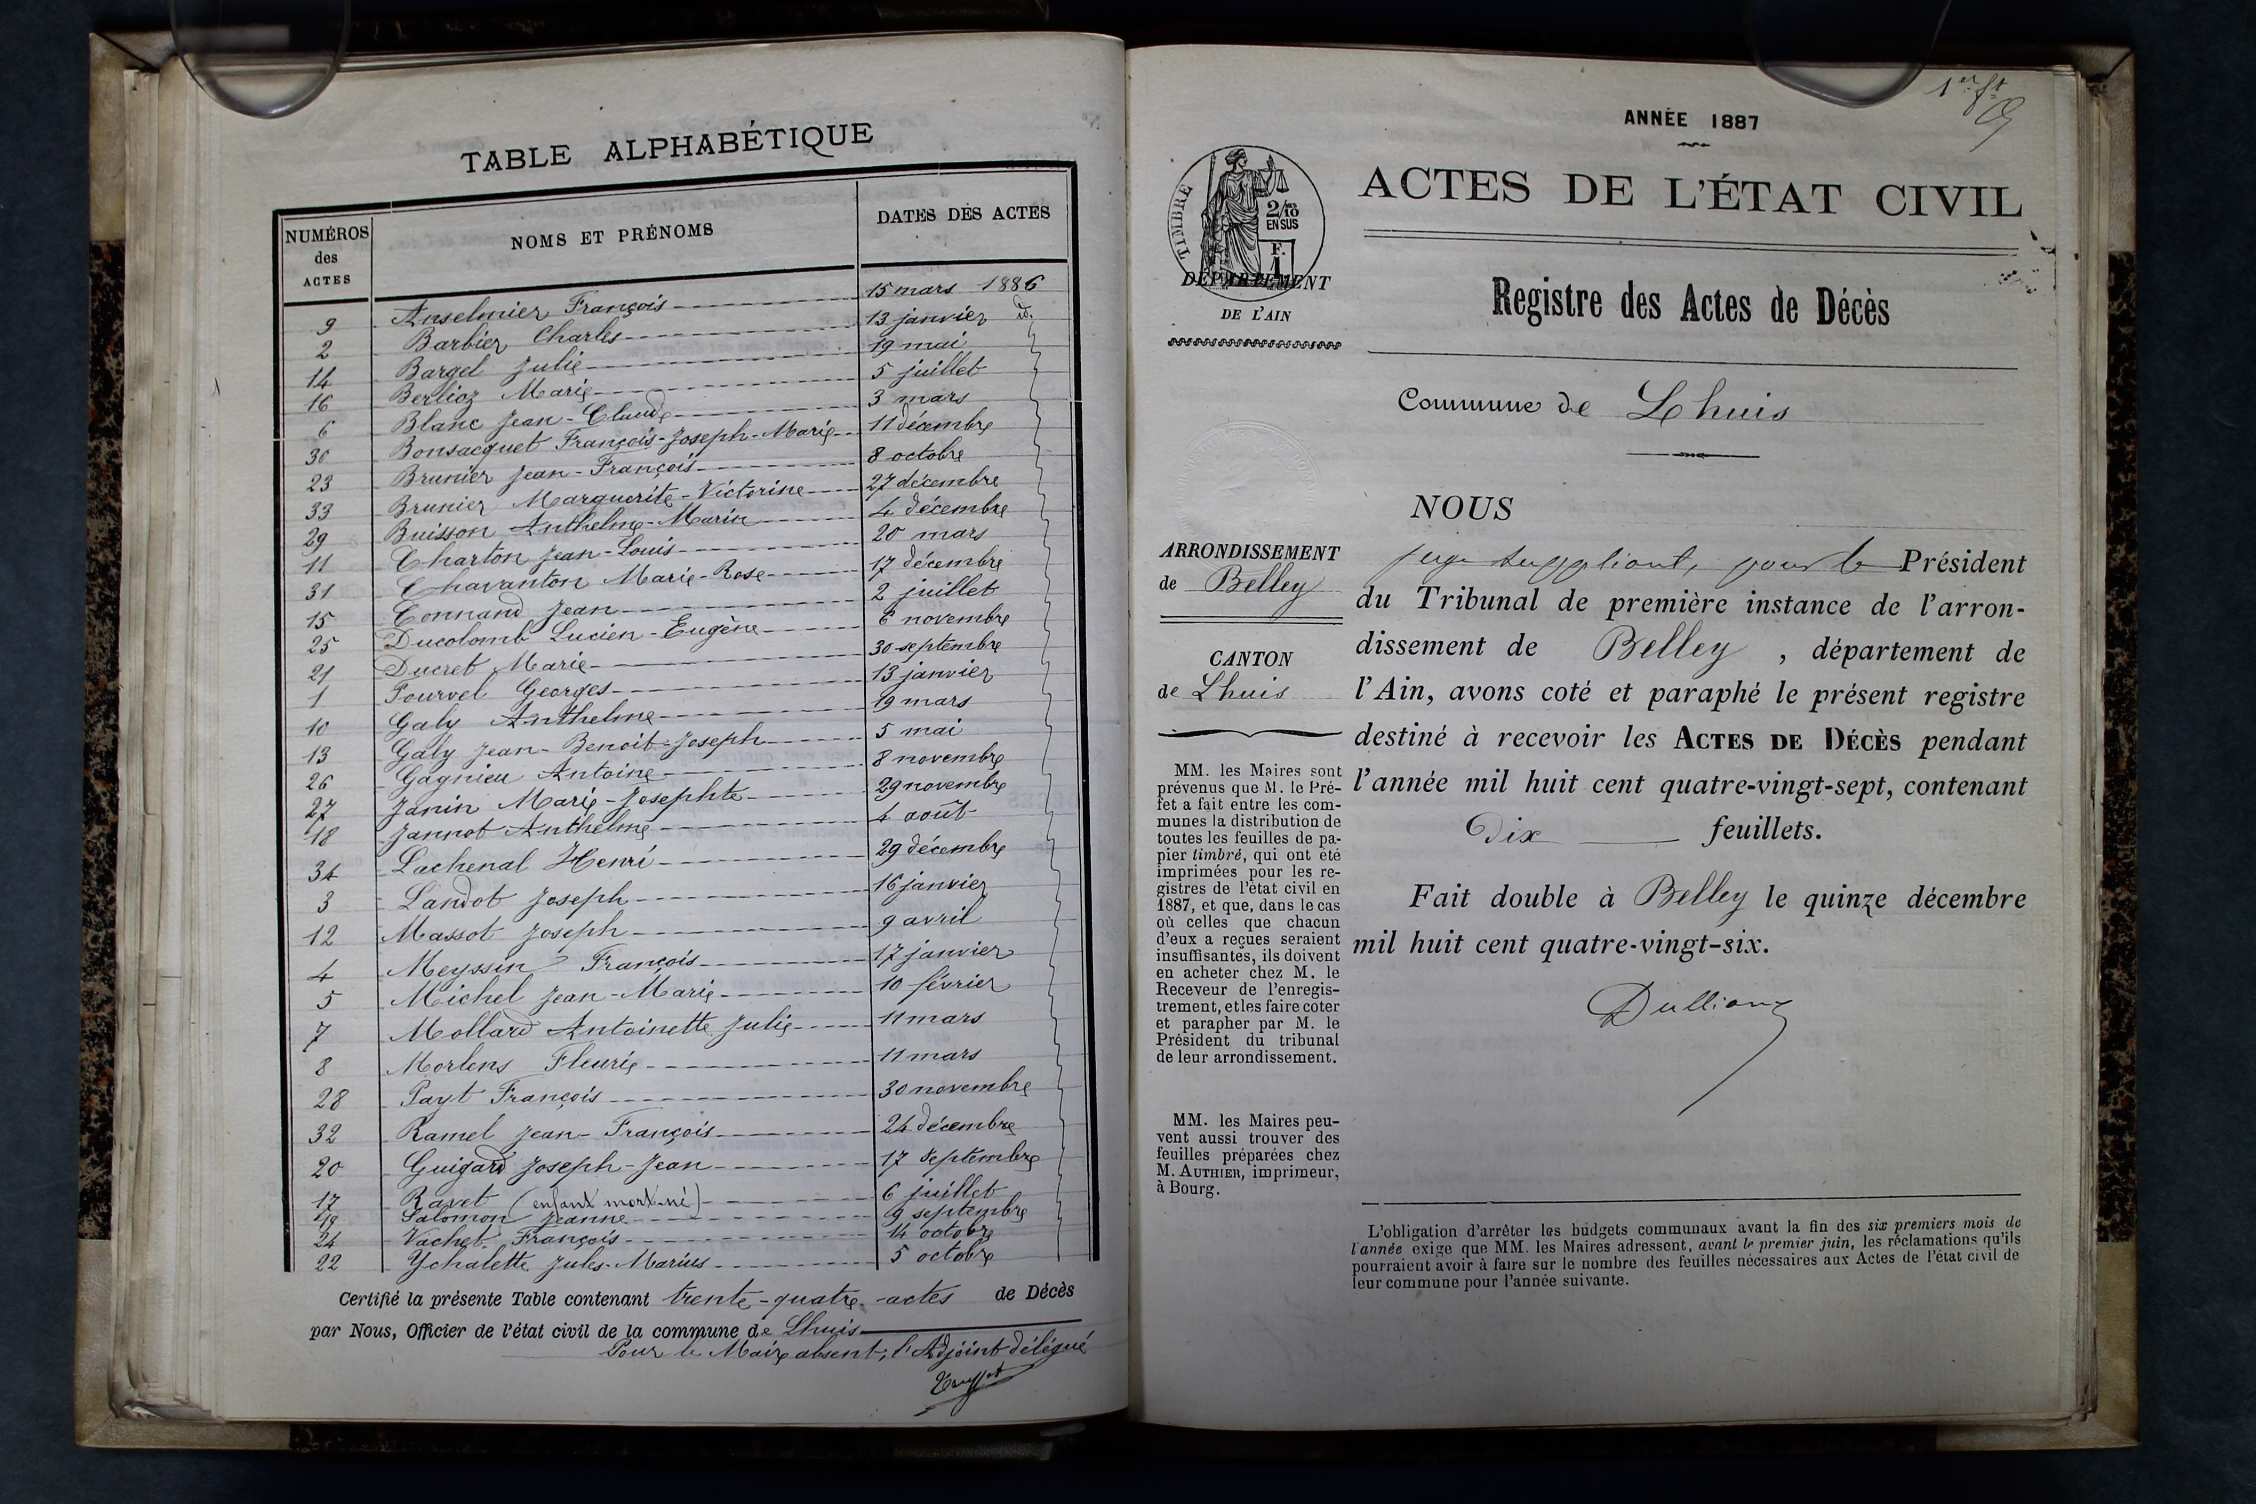 TABLE ALPHABÉTIQUE
NUMÉROS des ACTES NOMS ET PRÉNOMS DATES DES ACTES
9 Anselmier François 15 mars 1886
2 Barbier Charles 13 janvier id.
14 Bargel Julie 19 mai
16 Berlioz Marie 5 juillet
6 Blanc Jean-Claude 3 mars
30 Bonsacquet François-Joseph-Marie 11 décembre
23 Brunier Jean-François 8 octobre
33 Brunier Marguerite-Victorine 27 décembre
29 Buisson Anthelme-Marin 4 décembre
11 Charton Jean-Louis 20 mars
31 Chavanton Marie-Rose 17 décembre
15 Connand Jean 2 juillet
25 Ducolomb Lucien-Eugène 6 novembre
21 Ducret Marie 30 septembre
1 Fourvel Georges 13 janvier
10 Galy Anthelme 19 mars
13 Galy Jean-Benoit-Joseph 5 mai
26 Gagnieu Antoine 8 novembre
27 Janin Marie-Josephte 29 novembre
18 Jannot Anthelme 4 août
34 Lachenal Henri 29 décembre
3 Landot Joseph 16 janvier
12 Massot Joseph 9 avril
4 Meyssin François 17 janvier
5 Michel Jean-Marie 10 février
7 Mollard Antoinette Julie 11 mars
8 Morlens Fleurie 11 mars
28 Payt François 30 novembre
32 Ramel Jean-François 24 décembre
20 Guigard Joseph-Jean 17 septembre
17 Ravet (enfant mort-né) 6 juillet
19 Salomon Jeanne 9 septembre
24 Vachet François 14 octobre
22 Ychalette Jules-Marius 5 octobre
Certifié la présente Table contenant trente-quatre actes de Décès
par Nous, Officier de l'état civil de la commune de Lhuis
Pour le Maire absent, l'Adjoint délégué
1er ft
ANNÉE 1887
ACTES DE L'ÉTAT CIVIL
TIMBRE
2/10 EN SUS
F. 1
DÉPARTEMENT
DE L'AIN
Registre des Actes de Décès
Commune de Lhuis
ARRONDISSEMENT
de Belley
CANTON
de Lhuis
MM. les Maires sont
prévenus que M. le Pré-
fet a fait entre les com-
munes la distribution de
toutes les feuilles de pa-
pier timbré, qui ont été
imprimées pour les re-
gistres de l'état civil en
1887, et que, dans le cas
où celles que chacun
d'eux a reçues seraient
insuffisantes, ils doivent
en acheter chez M. le
Receveur de l'enregis-
trement, et les faire coter
et parapher par M. le
Président du tribunal
de leur arrondissement.
MM. les Maires peu-
vent aussi trouver des
feuilles préparées chez
M. AUTHIER, imprimeur,
à Bourg.
NOUS
juge suppléant, pour le Président
du Tribunal de première instance de l'arron-
dissement de Belley, département de
l'Ain, avons coté et paraphé le présent registre
destiné à recevoir les ACTES DE DÉCÈS pendant
l'année mil huit cent quatre-vingt-sept, contenant
Dix feuillets.
Fait double à Belley le quinze décembre
mil huit cent quatre-vingt-six.
L'obligation d'arrêter les budgets communaux avant la fin des six premiers mois de
l'année exige que MM. les Maires adressent, avant le premier juin, les réclamations qu'ils
pourraient avoir à faire sur le nombre des feuilles nécessaires aux Actes de l'état civil de
leur commune pour l'année suivante.